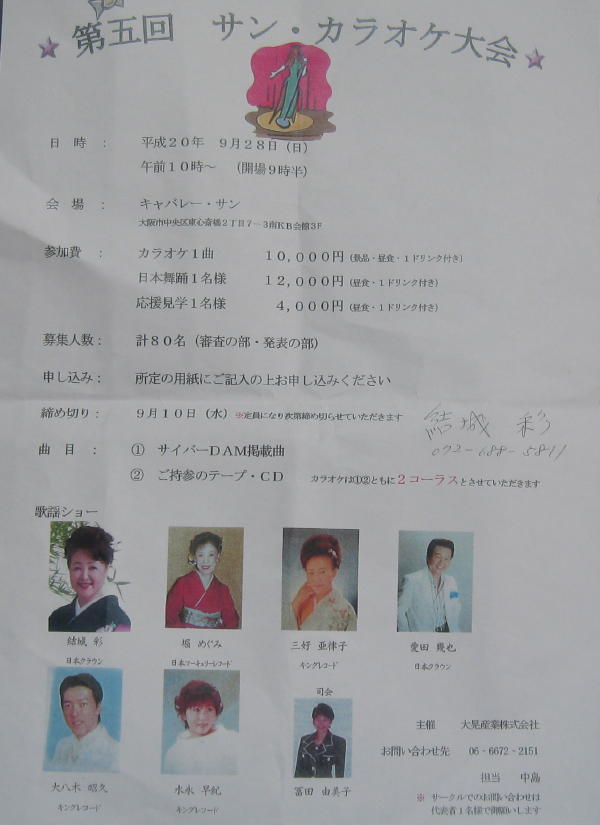 第五回 サン・カラオケ大会
日 時 : 平成20年 9月28日(日)
午前10時~ (開場9時半)
会 場 : キャバレー・サン
大阪市中央区東心斎橋2丁目7-3南KB会館3F
参加費 : カラオケ1曲 10,000円(景品・昼食・1ドリンク付き)
日本舞踊1名様 12,000円(昼食・1ドリンク付き)
応援見学1名様 4,000円(昼食・1ドリンク付き)
募集人数 : 計80名(審査の部・発表の部)
申し込み : 所定の用紙にご記入の上お申し込みください
締め切り : 9月10日(水) ※定員になり次第締め切らせていただきます
結城 彩
072-688-5811
曲 目 : ① サイバーDAM掲載曲
② ご持参のテープ・CD カラオケは①②ともに2コーラスとさせていただきます
歌謡ショー
結城 彩 堀 めぐみ 三好 亜律子 愛田 幾也
日本クラウン 日本マーキュリーレコード キングレコード 日本クラウン
司会
大八木 昭久 水永 早紀 冨田 由美子
キングレコード キングレコード
主催 大晃産業株式会社
お問い合わせ先 06-6672-2151
担当 中島
※ サークルでのお問い合わせは
代表者1名様で御願いします